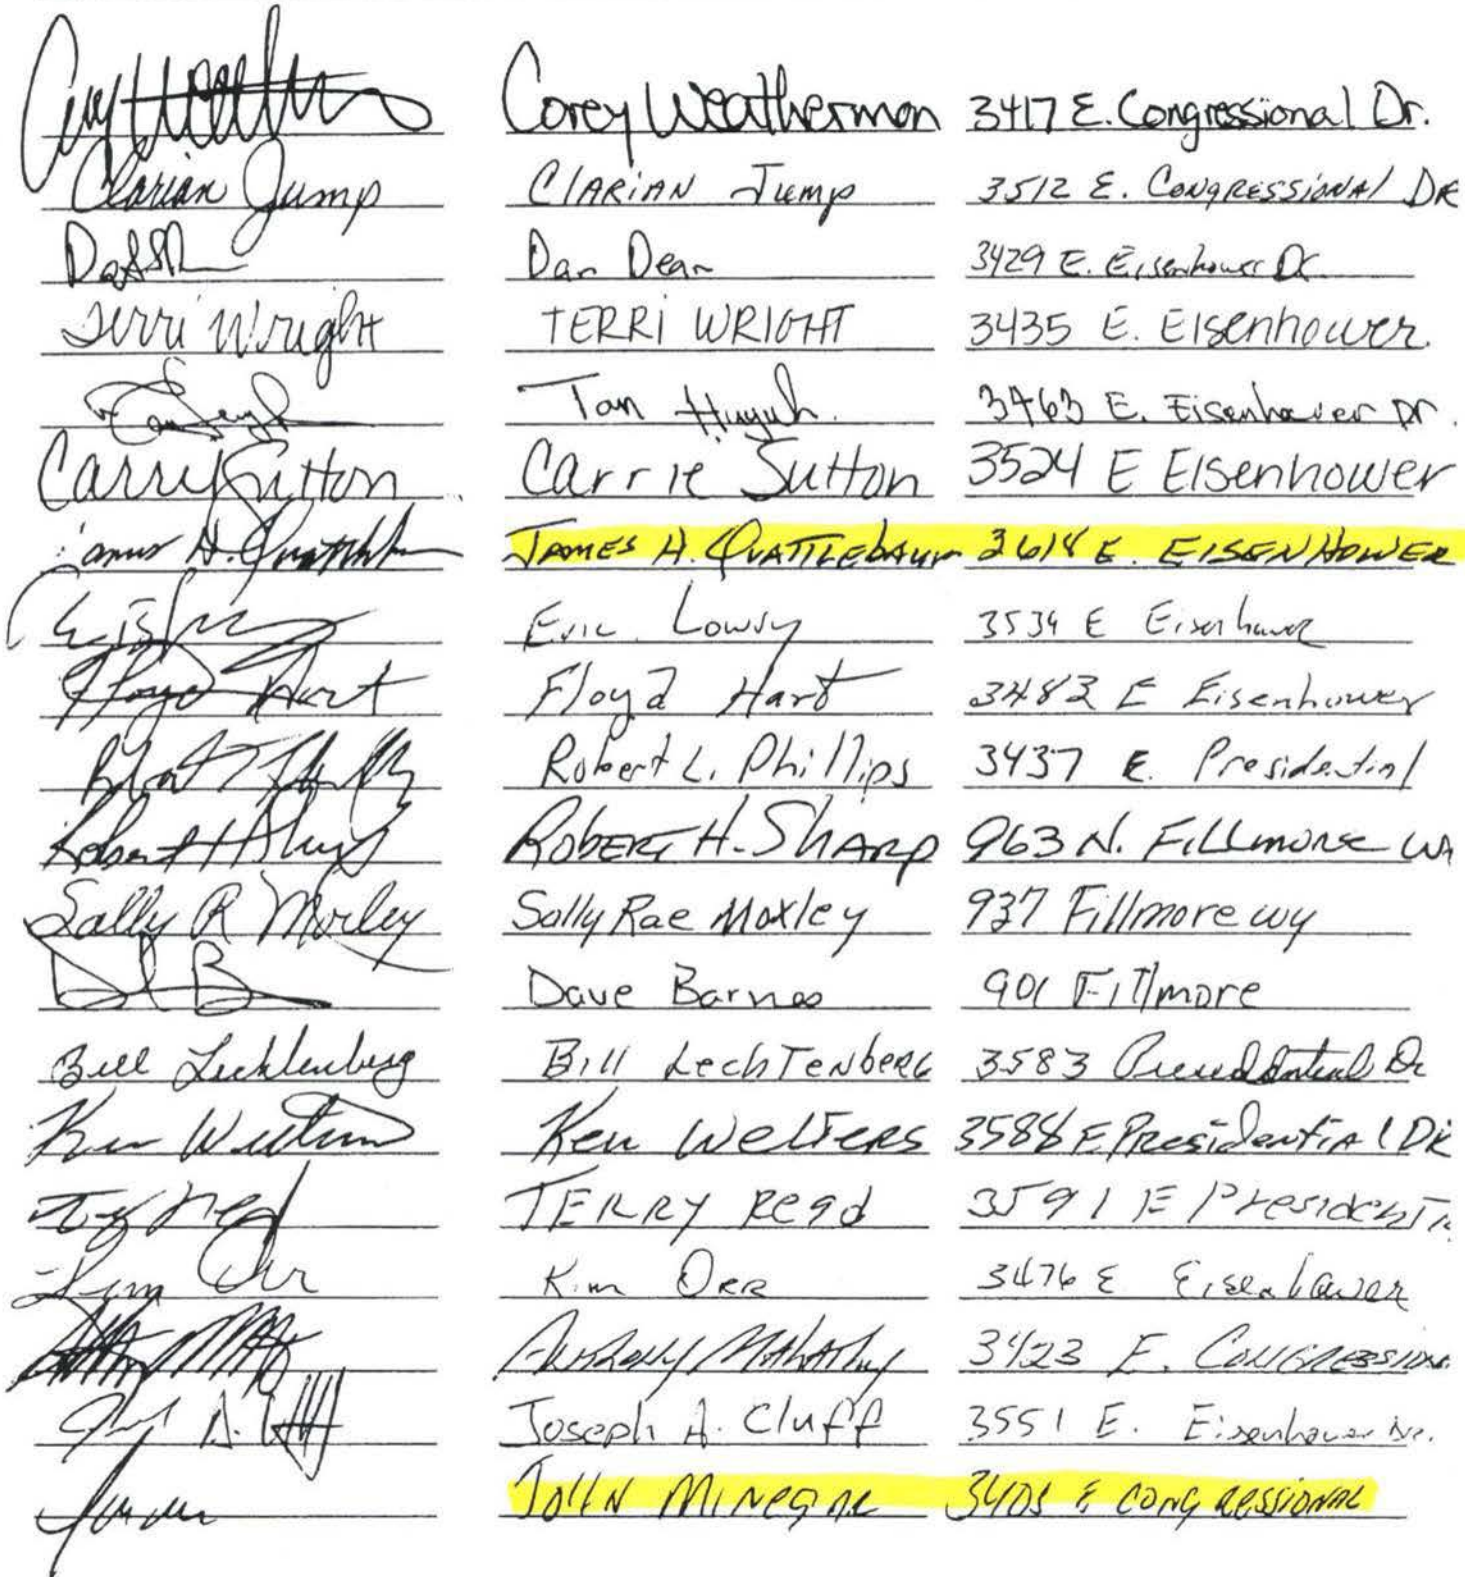 Corey Weatherman 3417 E. Congressional Dr.
Clarian Jump CLARIAN Jump 3512 E. CONGRESSIONAL DR
Dan Dean 3429 E. Eisenhower Dr.
Terri Wright TERRI WRIGHT 3435 E. Eisenhower.
Tan Huynh. 3463 E. Eisenhower Dr.
Carry Sutton Carrie Sutton 3524 E Eisenhower
James H. JAMES H. QUATTLEBAUM 3618 E. EISENHOWER
Eric Lowry 3534 E Eisenhower
Floyd Hart Floyd Hart 3483 E Eisenhower
Robert L. Phillips 3437 E. Presidential
Robert H Sharp ROBERT H. SHARP 963 N. FILLMORE WA
Sally R Moxley Sally Rae Moxley 937 Fillmore wy
Dave Barnes 901 Fillmore
Bill Lechtenberg Bill LechTenberg 3583 Presidential Dr
Ken Welters Ken Welters 3588 E Presidential DR
TERRY Read 3591 E Presidenti
Kim Orr Kim ORR 3476 E Eisenhower
Anthony 3423 E. CONGRESSIONA
Joseph A. Cluff 3551 E. Eisenhower Dr.
JOHN MINEGAR 3408 E CONGRESSIONAL